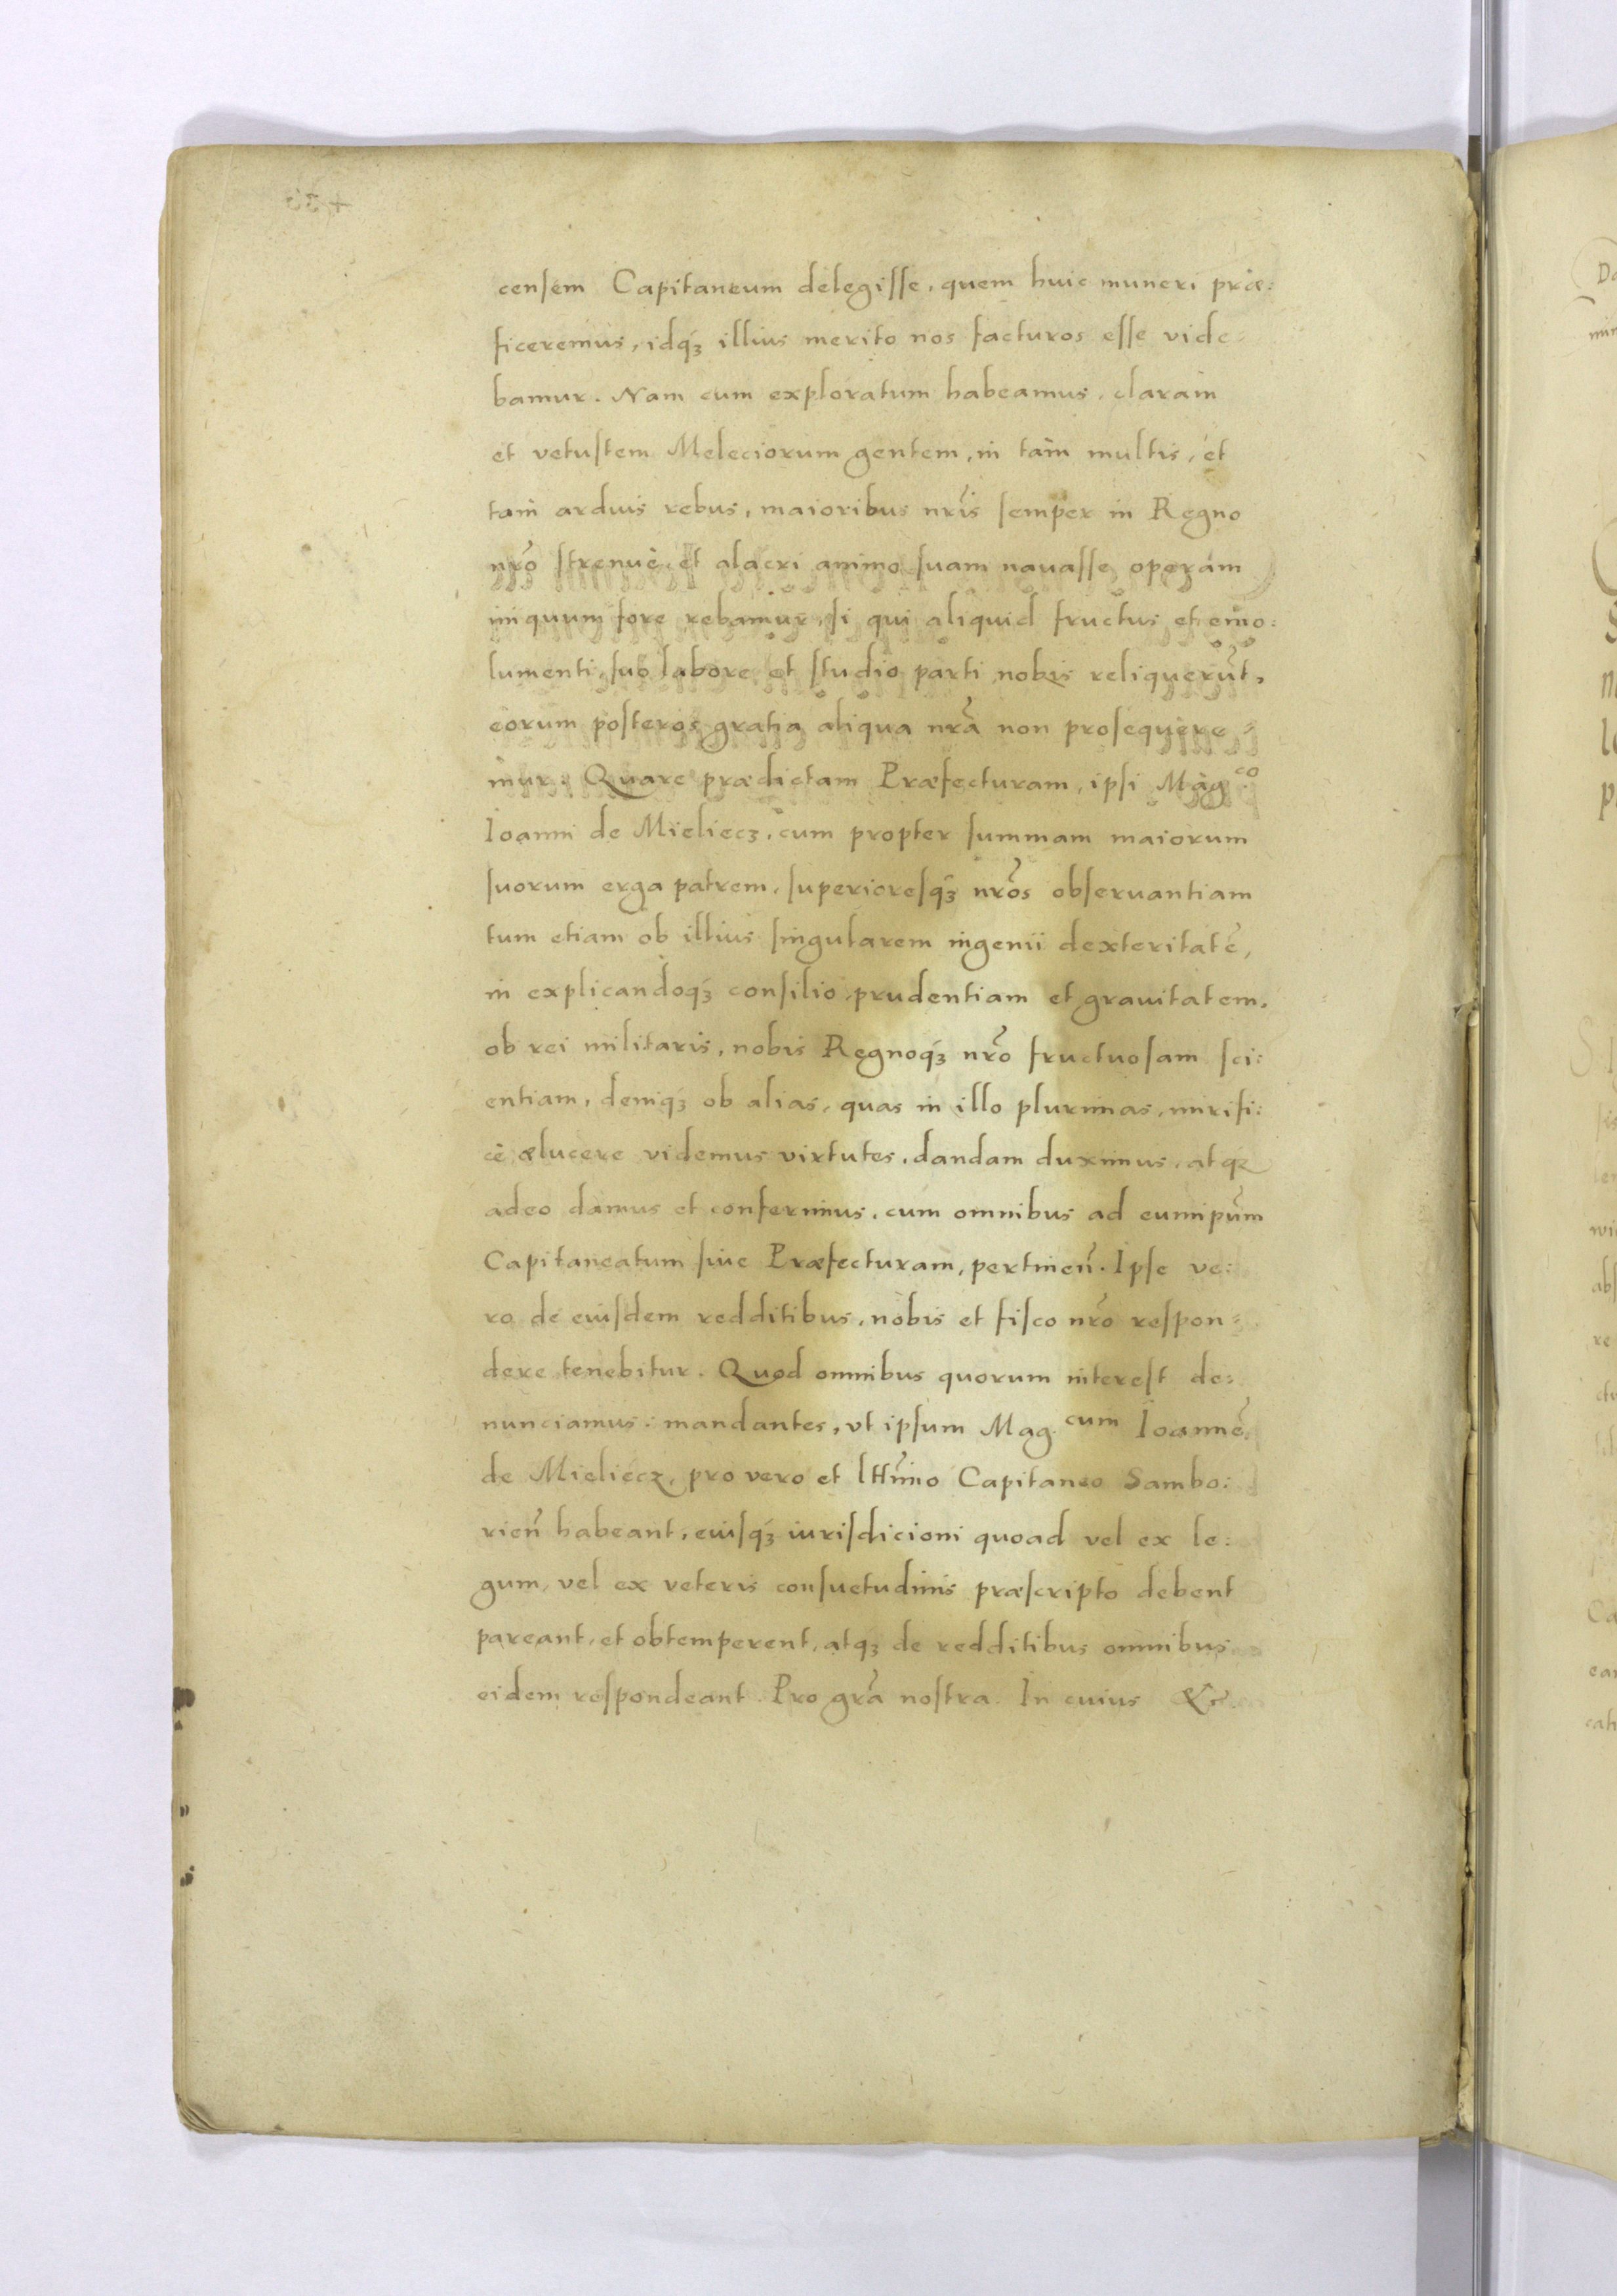 censem Capitaneum delegisse, quem huic muneri præ:
ficeremus, idq́ꝫ illius merito nos facturos esse vide-
bamur. Nam cum exploratum habeamus, claram
et vetustem Meleciorum gentem, in tàm multis, et
tam arduis rebus, maioribus nr̃is semper in Regno
nr̃o strenuè et alacri animo suam nauasse operam
iniquum fore rebamur, si qui aliquid fructus et emo:
lumenti, suo labore et studio parti nobis reliquerũt,
eorum posteros gratia aliqua nr̃a non prosequere-
mur. Quare prædictam Præfecturam, ipsi Mag.co
Ioanni de Mieliecz, cum propter summam maiorum
suorum erga patrem, superioresq́ꝫ nr̃os obseruantiam
tum etiam ob illius singularem ingenii dexteritatẽ,
in explicandoq́ꝫ consilio prudentiam et grauitatem,
ob rei militaris, nobis Regnoq́ꝫ nr̃o fructuosam sci:
entiam, deniq́ꝫ ob alias, quas in illo plurimas, mirifi:
cè ælucere videmus virtutes, dandam duximus, atqꝫ
adeo damus et conferimus, cum omnibus ad eum ip̃um
Capitaneatum siue Præfecturam, pertineñ. Ipse ve:
ro de eiusdem redditibus, nobis et fisco nr̃o respon-
dere tenebitur. Quod omnibus quorum interest de:
nunciamus: mandantes, vt ipsum Mag.cum Ioannẽ
de Mieliecz, pro vero et ltt̃imo Capitaneo Sambo:
rieñ habeant, eiusq́ꝫ iurisdicioni quoad vel ex le:
gum, vel ex veteris consuetudinis præscripto debent
pareant, et obtemperent, atqꝫ de redditibus omnibus
eidem respondeant. Pro gr̃a nostra. In cuius &c.